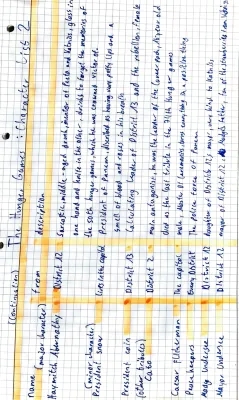 (Continuation) The Hunger Games: Character List 2
Name From Description
(major character)
Haymitch Abernathy District 12 Sarcastic, middle-aged drunk, mentor of Peeta and Katniss, glass in
one hand and knife in the other, drinks to forget the memories of
the 50th hunger games, which he was crowned victor of.
(minor character)
President Snow lives in the capitol President of Panem, described as having over puffy lips and a
smell of blood and roses in his breath
President coin District 13 Calculating leader of District 13 and the rebellion, female
(other tributes)
Cato District 2 main antagonist, he was the leader of the career pack,
died as the last tribute in the 74th Hunger games.
Caesar Flickerman The capitol
Peacekeepers Every District The police force of Panem
Madge Undersee District 12 daughter of District 12's mayor,
Mayor Undersee District 12 mayor of District 12, Madge's father,